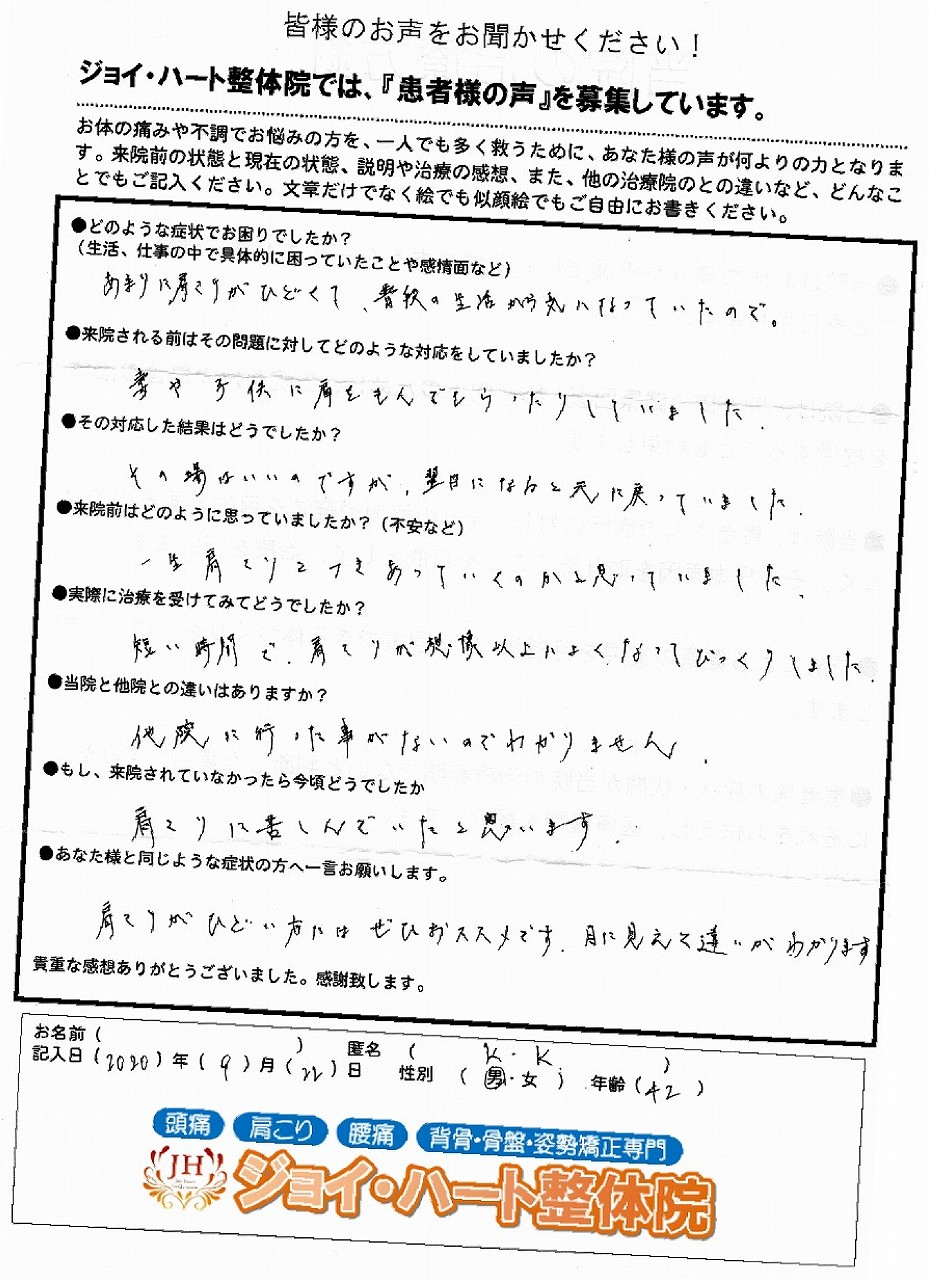 皆様のお声をお聞かせください！
ジョイ・ハート整体院では、『患者様の声』を募集しています。
お体の痛みや不調でお悩みの方を、一人でも多く救うために、あなた様の声が何よりの力となりま
す。来院前の状態と現在の状態、説明や治療の感想、また、他の治療院のとの違いなど、どんなこ
とでもご記入ください。文章だけでなく絵でも似顔絵でもご自由にお書きください。
●どのような症状でお困りでしたか？
（生活、仕事の中で具体的に困っていたことや感情面など）
あまりに肩こりがひどくて、普段の生活が憂うつになっていたので。
●来院される前はその問題に対してどのような対応をしていましたか？
妻や子供に肩をもんでもらったりしていました．
●その対応した結果はどうでしたか？
その場はいいのですが、翌日になると元に戻っていました．
●来院前はどのように思っていましたか？（不安など）
一生肩こりとつきあっていくのかと思っていました．
●実際に治療を受けてみてどうでしたか？
短い時間で、肩こりが想像以上によくなってびっくりしました．
●当院と他院との違いはありますか？
他院に行った事がないのでわかりません．
●もし、来院されていなかったら今頃どうでしたか
肩こりに苦しんでいたと思います．
●あなた様と同じような症状の方へ一言お願いします。
肩こりがひどい方にはぜひおススメです．目に見えて違いがわかります
貴重な感想ありがとうございました。感謝致します。
お名前（　　　）　匿名（　K．K　）
記入日（2020）年（9）月（22）日　性別（男・女）　年齢（42）
頭痛　肩こり　腰痛　背骨・骨盤・姿勢矯正専門
JH ジョイ・ハート整体院